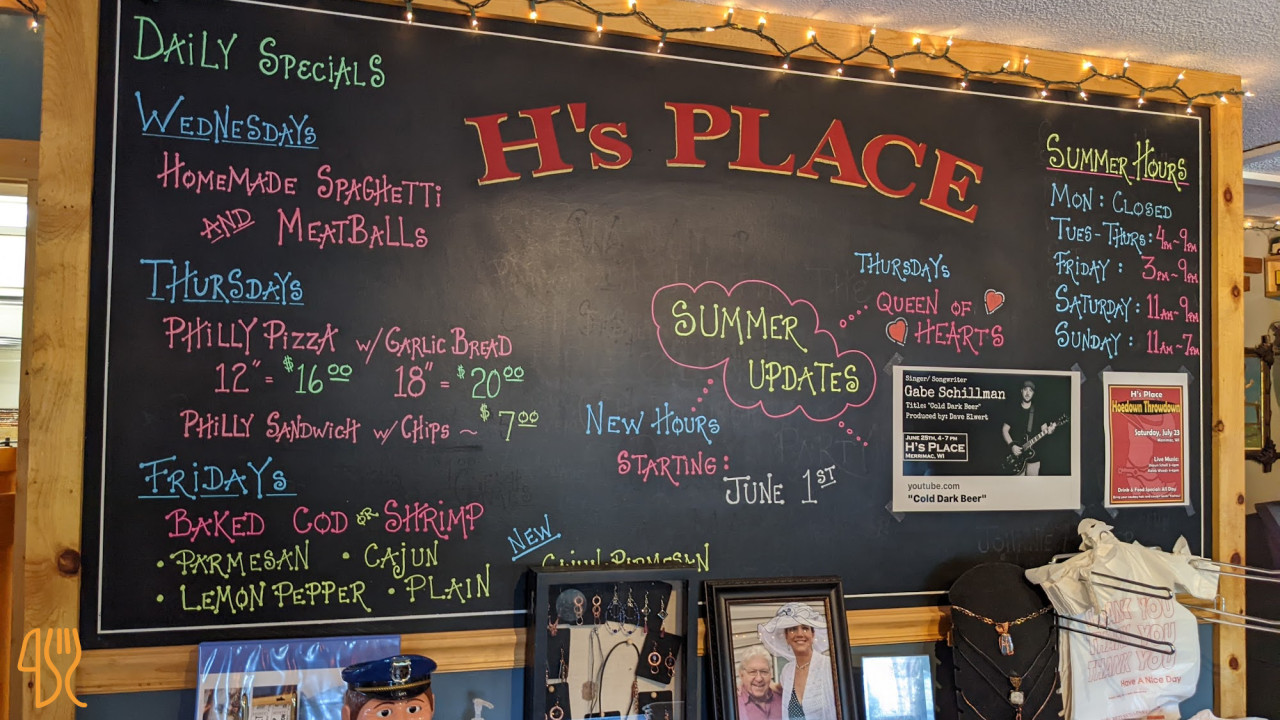 Daily Specials
Wednesdays
Homemade Spaghetti
and Meatballs
Thursdays
Philly Pizza w/ Garlic Bread
12" = $16.00 18" = $20.00
Philly Sandwich w/ Chips ~ $7.00
Fridays
Baked Cod or Shrimp
• Parmesan • Cajun
• Lemon Pepper • Plain
New
Cajun Parmesan
H's PLACE
Summer Updates
Thursdays
Queen of
Hearts
New Hours
Starting:
June 1st
Summer Hours
Mon: Closed
Tues-Thurs: 4pm-9pm
Friday: 3pm-9pm
Saturday: 11am-9pm
Sunday: 11am-7pm
Singer/ Songwriter
Gabe Schillman
Title: "Cold Dark Beer"
Produced by: Dave Elwert
JUNE 25TH, 4-7 PM
H'S PLACE
MERRIMAC, WI
youtube.com
"Cold Dark Beer"
H's Place
Hoedown Throwdown
Saturday, July 23
Merrimac, WI
Live Music:
Drink & Food Specials All Day
THANK YOU
THANK YOU
THANK YOU
Have A Nice Day